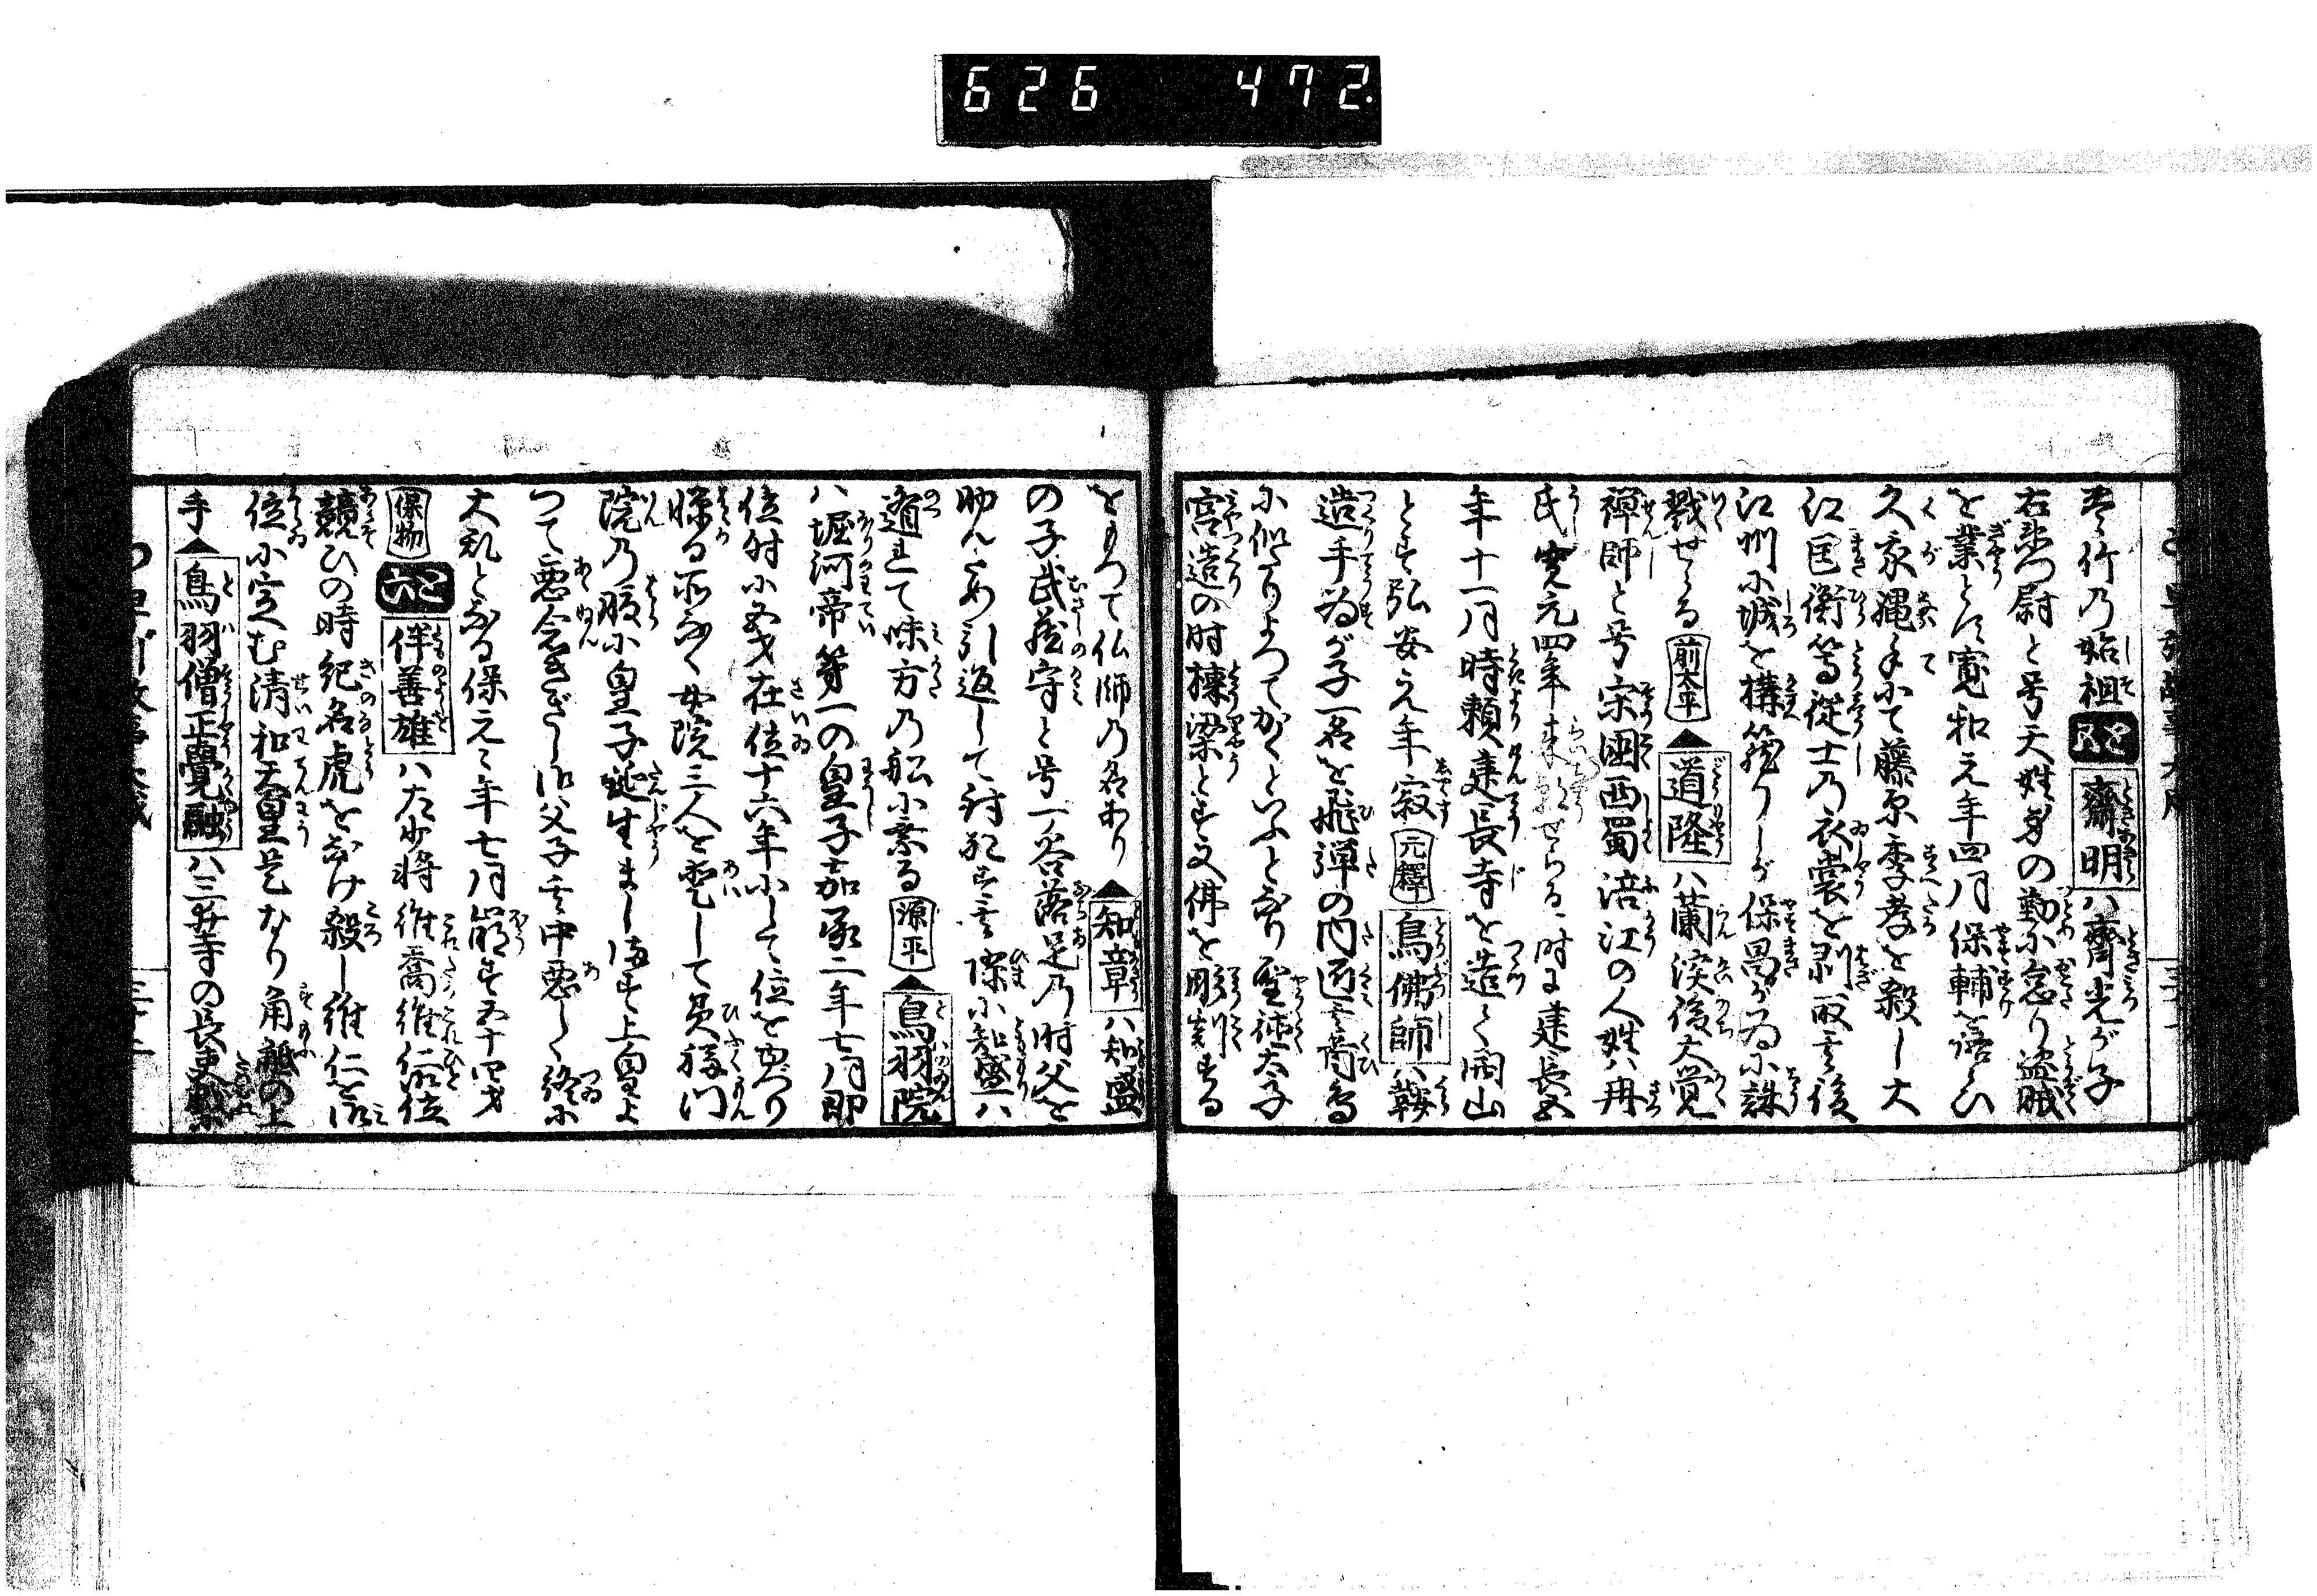 626 472
是竹乃始祖 ㊁人 齋明ハ齊光が子
右兵衛尉と号天姓身の勤に怠り盗賊
を業とす寛和元年四月保輔と語らひ
久我縄手にて藤原季孝を殺し大
江匡衡等従士乃衣裳を剥取其後
江州に城を構籠りしが保昌が為に誅
戮せらる 前太平 ▲道隆ハ蘭渓後大覚
禅師と号宗国西蜀涪江の人姓ハ冉
氏寛元四年来朝せらる時に建長五
年十一月時頼建長寺を造て開山
とす弘安元年寂 元釋 鳥佛師ハ鞍
造手為が子一名を飛弾の内匠其首鳥
に似たりよつてかくといふとなり聖徳太子
宮造の時棟梁とす又佛を彫刻する
をもつて仏師乃名あり ▲知章ハ知盛
の子武蔵守と号一ノ谷落足乃時父を
助んため引返して討死す其隙に知盛ハ
遁れて味方乃船に乗る 源平 ▲鳥羽院
ハ堀河帝第一の皇子嘉承二年七月即
位時に五才在位十六年にして位をゆづり
給ふ
院乃腹に皇子誕生まし給す上皇よ
つて悪念きざし御父子其中悪しく終に
大乱となる保元々年七月崩す五十四才
保物 伴善雄ハ左少将惟喬惟仁御位
競ひの時紀名虎をなげ殺し惟仁を御
位に定む清和天皇是なり角觝の上
手▲鳥羽僧正覺融ハ三井寺の長吏